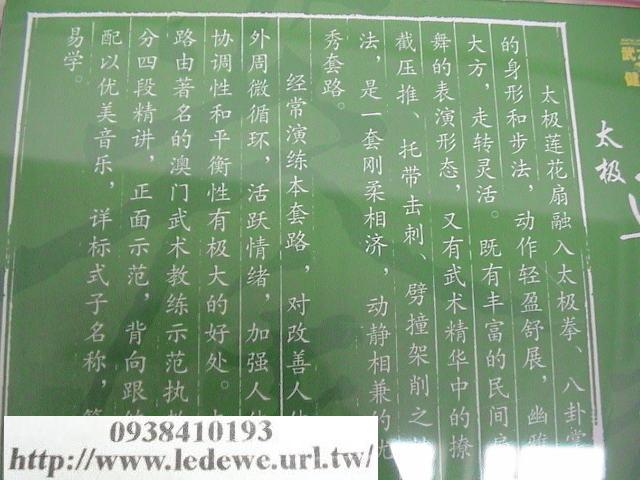 太极
太极莲花扇融入太极拳、八卦掌
的身形和步法，动作轻盈舒展，幽雅
大方，走转灵活。既有丰富的民间
舞的表演形态，又有武术精华中的撩
截压推、托带击刺、劈撞架削之
法，是一套刚柔相济，动静相兼的优
秀套路。
经常演练本套路，对改善人
外周微循环，活跃情绪，加强人
协调性和平衡性有极大的好处。
路由著名的澳门武术教练示范执
分四段精讲，正面示范，背向跟
配以优美音乐，详标式子名称，
易学。
0938410193
http://www.ledewe.url.tw/